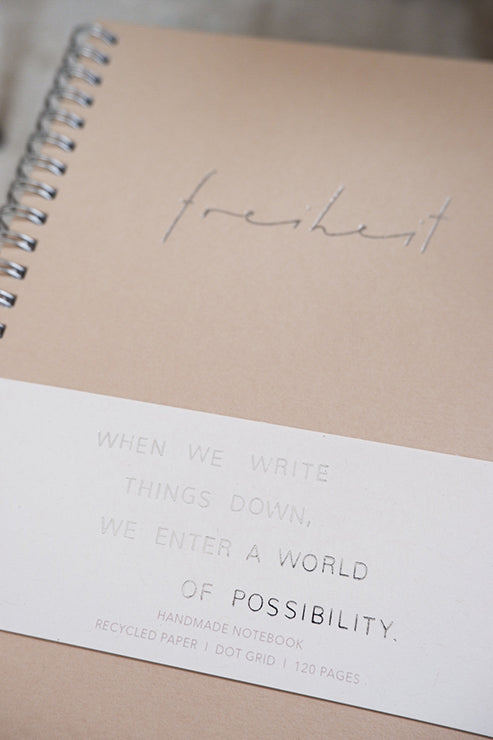 freiheit
WHEN WE WRITE
THINGS DOWN,
WE ENTER A WORLD
OF POSSIBILITY.
HANDMADE NOTEBOOK
RECYCLED PAPER | DOT GRID | 120 PAGES